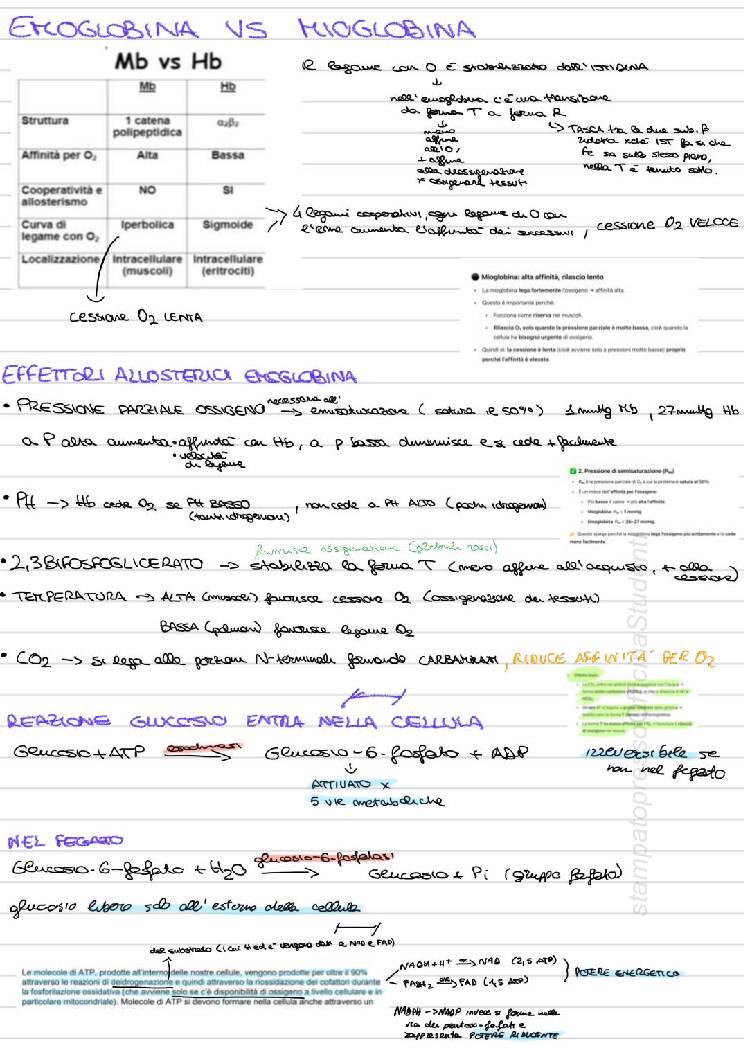 EMOGLOBINA VS MIOGLOBINA
Mb vs Hb
Mb Hb
Struttura 1 catena polipeptidica α₂β₂
Affinità per O₂ Alta Bassa
Cooperatività e allosterismo NO SI
Curva di legame con O₂ Iperbolica Sigmoide
Localizzazione Intracellulare (muscoli) Intracellulare (eritrociti)
cessione O2 LENTA
Il legame con O è stabilizzato dall'ISTIDINA
↓
nell'emoglobina c'è una transizione
da forma T a forma R
meno
affine
all'O₂
+ affine
alla deossigenazione
x ossigenare tessuti
↳ TASCA tra le due sub. β
ridotta
sullo stesso piano,
nella T è tenuto sotto.
4 legami cooperativi, ogni legame di O con
l'eme aumenta l'affinità dei successivi, cessione O2 VELOCE
Mioglobina: alta affinità, rilascio lento
• La mioglobina lega fortemente l'ossigeno → affinità alta.
• Questo è importante perché:
• Funziona come riserva nei muscoli.
• Rilascia O₂ solo quando la pressione parziale è molto bassa, cioè quando la
cellula ha bisogno urgente di ossigeno.
• Quindi sì: la cessione è lenta (cioè avviene solo a pressioni molto basse) proprio
perché l'affinità è elevata.
EFFETTORI ALLOSTERICI EMOGLOBINA
• PRESSIONE PARZIALE OSSIGENO necessaria all' → emisaturazione (satura il 50%) 1mmHg Mb, 27mmHg Hb
a P alta aumenta • affinità con Hb, a p bassa diminuisce e si cede + facilmente
• velocità
di legame
2. Pressione di semisaturazione (P₅₀)
• P₅₀ è la pressione parziale di O₂ a cui la proteina è satura al 50%.
• È un indice dell'affinità per l'ossigeno:
• Più basso il valore → più alta l'affinità.
• Mioglobina: P₅₀ ≈ 1 mmHg
• Emoglobina: P₅₀ ≈ 26–27 mmHg
Questo spiega perché la mioglobina lega l'ossigeno più avidamente e lo cede
meno facilmente.
• PH → Hb cede O₂ se PH BASSO, non cede a PH ALTO (pochi idrogenioni)
(tanti idrogenioni)
favorisce ossigenazione (globuli rossi)
• 2,3 BIFOSFOGLICERATO → stabilizza la forma T (meno affine all'acquisto, + alla
cessione)
• TEMPERATURA → ALTA (muscoli) favorisce cessione O₂ (ossigenazione dei tessuti)
BASSA (polmoni) favorisce legame O₂
• CO₂ → si lega alle porzioni N-terminali formando CARBAMMATI, RIDUCE AFFINITÀ PER O₂
REAZIONE GLUCOSIO ENTRA NELLA CELLULA
Glucosio + ATP esochinasi → Glucosio-6-fosfato + ADP
irreversibile se
non nel fegato
↓
ATTIVATO x
5 vie metaboliche
NEL FEGATO
Glucosio-6-fosfato + H₂O glucosio-6-fosfatasi → Glucosio + Pi (gruppo fosfato)
glucosio libero solo all'esterno della cellula
del substrato (i cui H ed e⁻ vengono dati a NAD e FAD)
Le molecole di ATP, prodotte all'interno delle nostre cellule, vengono prodotte per oltre il 90%
attraverso le reazioni di deidrogenazione e quindi attraverso la riossidazione dei cofattori durante
la fosforilazione ossidativa (che avviene solo se c'è disponibilità di ossigeno a livello cellulare e in
particolare mitocondriale). Molecole di ATP si devono formare nella cellula anche attraverso un
NADH+H⁺ → NAD (2,5 ATP)
FADH₂ → FAD (1,5 ATP)
POTERE ENERGETICO
NADPH → NADP invece si forma nella
via dei pentoso-fosfati e
rappresenta POTERE RIDUCENTE
stampatopressoofficinaStudenti